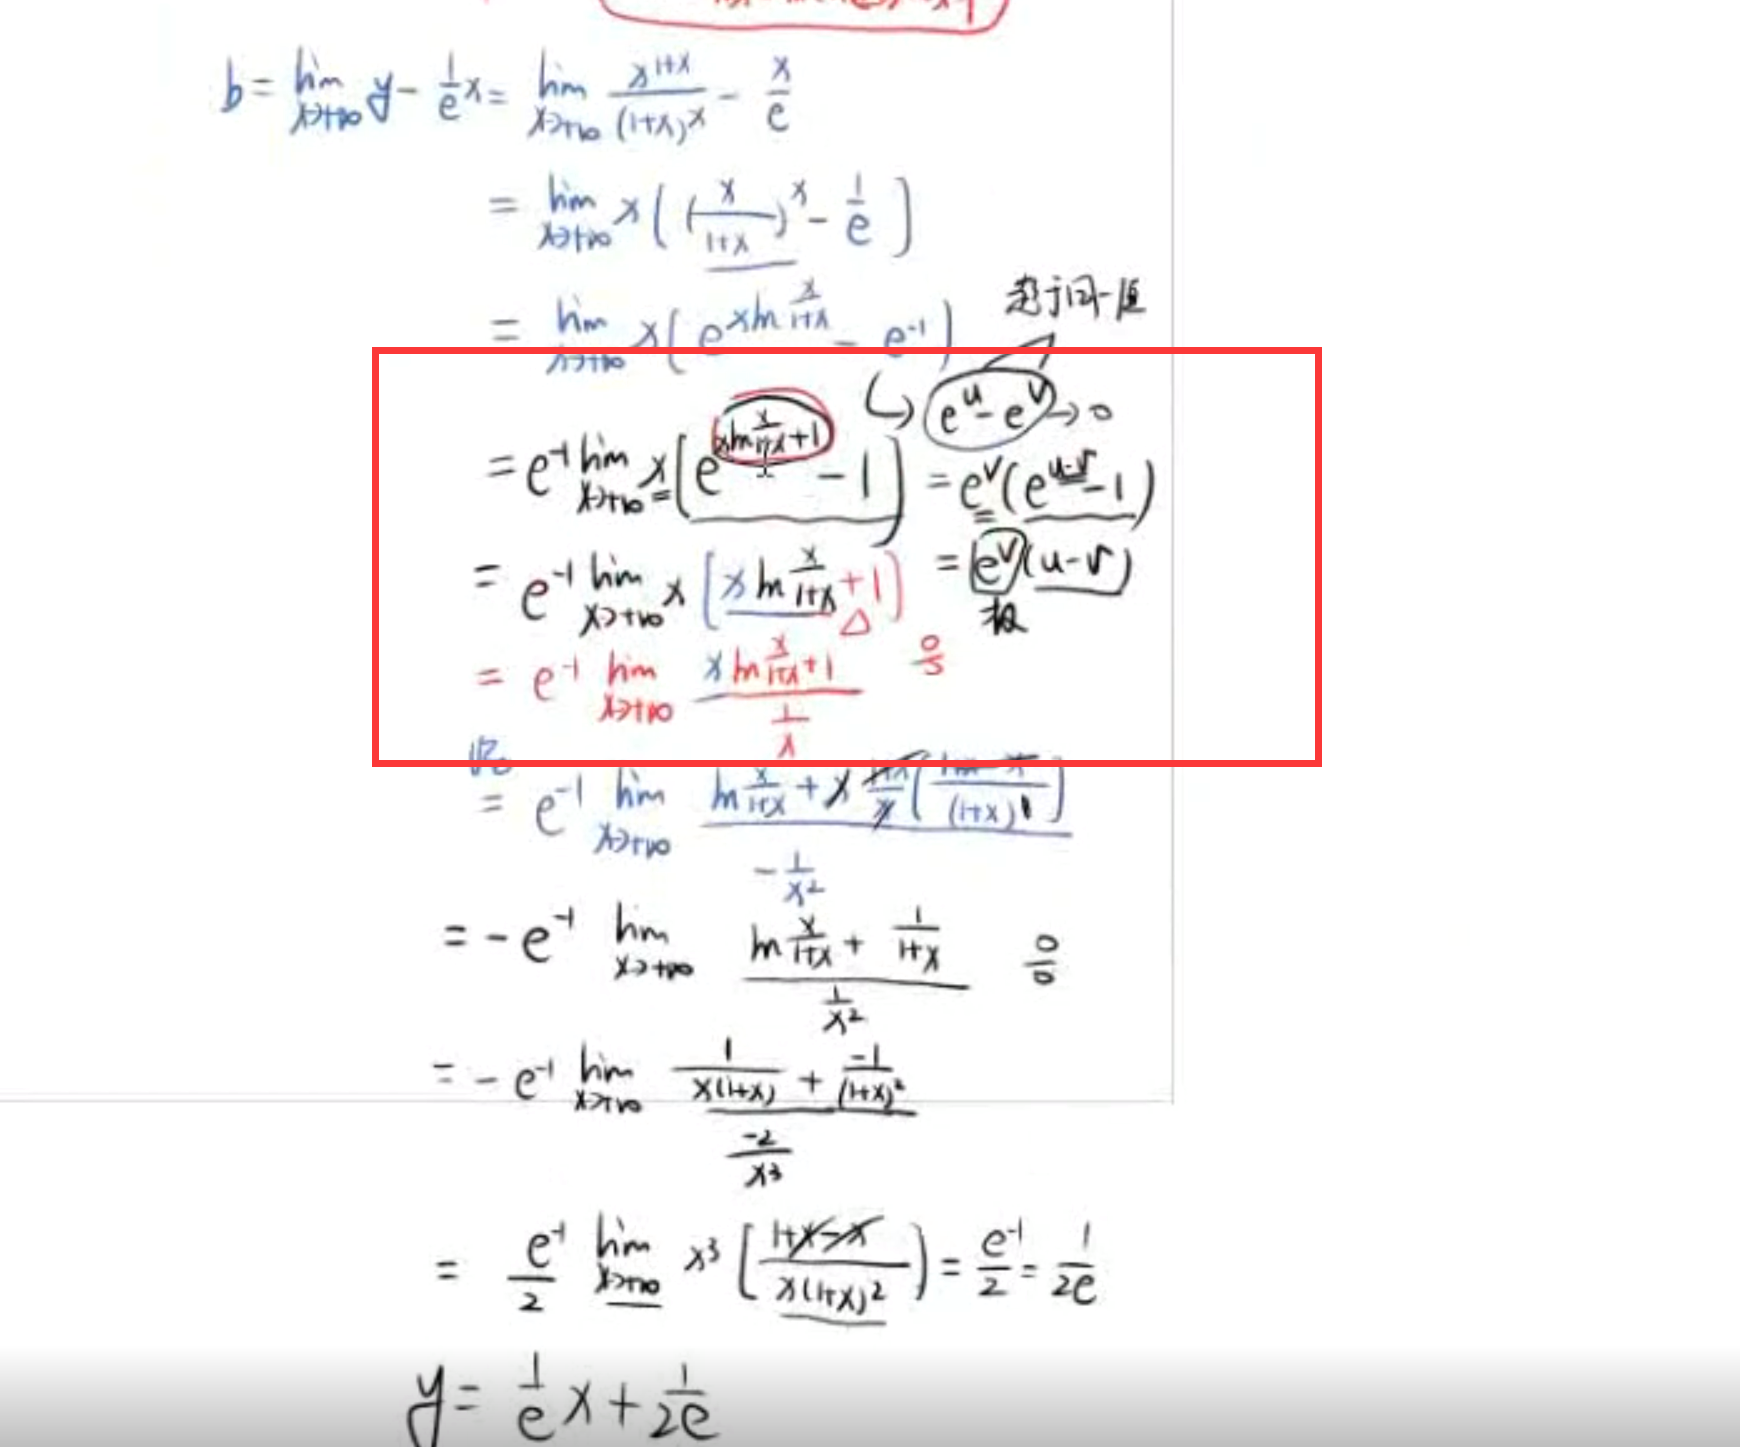 b = lim x→+∞ y - 1/e x = lim x→+∞ x^(1+x)/(1+x)^x - x/e
= lim x→+∞ x ( (x/(1+x))^x - 1/e )
趋于同一值
= lim x→+∞ x ( e^(x ln x/(1+x)) - e^-1 )
↳ e^u - e^v → 0
= e^-1 lim x→+∞ x [ e^(x ln x/(1+x) + 1) - 1 ] = e^v ( e^(u-v) - 1 )
= e^-1 lim x→+∞ x [ x ln x/(1+x) + 1 ] = e^v ( u - v )
△
= e^-1 lim x→+∞ (x ln x/(1+x) + 1)/(1/x) 0/0
洛
= e^-1 lim x→+∞ (ln x/(1+x) + x (1+x)/x ( (1+x-x)/(1+x) ))/(-1/x^2)
= -e^-1 lim x→+∞ (ln x/(1+x) + 1/(1+x))/(1/x^2) 0/0
= -e^-1 lim x→+∞ (1/(x(1+x)) + -1/(1+x)^2)/(-2/x^3)
= e^-1/2 lim x→+∞ x^3 [ (1+x-x)/(x(1+x)^2) ] = e^-1/2 = 1/2e
y = 1/e x + 1/2e